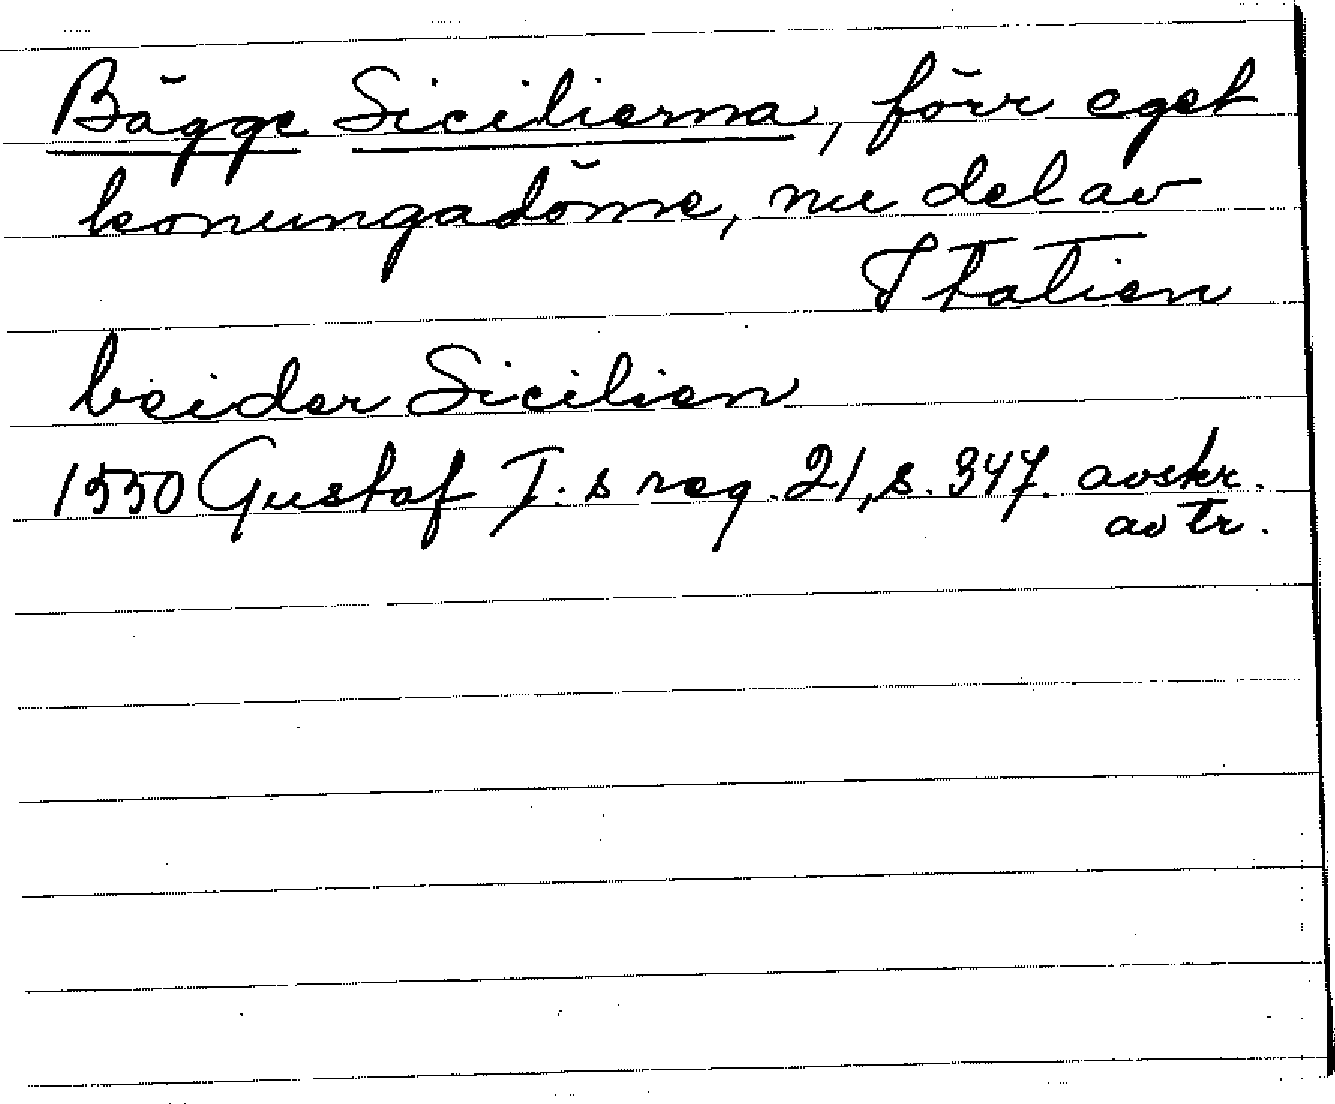 Bägge Sicilierna, förr eget
konungadöme, nu del av
Italien
beider Sicilien
1550 Gustaf I:s reg. 21, s. 347. avskr.
av tr.